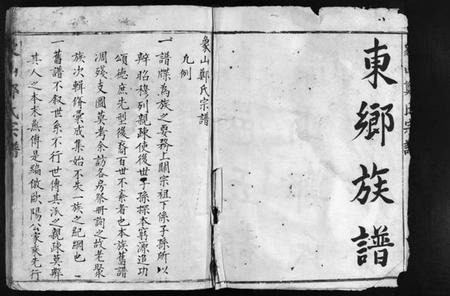 東鄉族譜
象山鄭氏宗譜
凡例
一譜牒為族之要務上關宗祖下係子孫所以
辨昭穆列親疎使後世子孫探本窮源追功
頌德庶先型後裔百世不紊者也本族舊譜
凋殘支圖莫考余訪各房祭冊詢之故老聚
族次輯脩彙成集始不失一族之紀綱也
一舊譜不敘世系不行世傳其派之親疎莫辨
其人之本末無傳是編倣歐陽公蘇先行